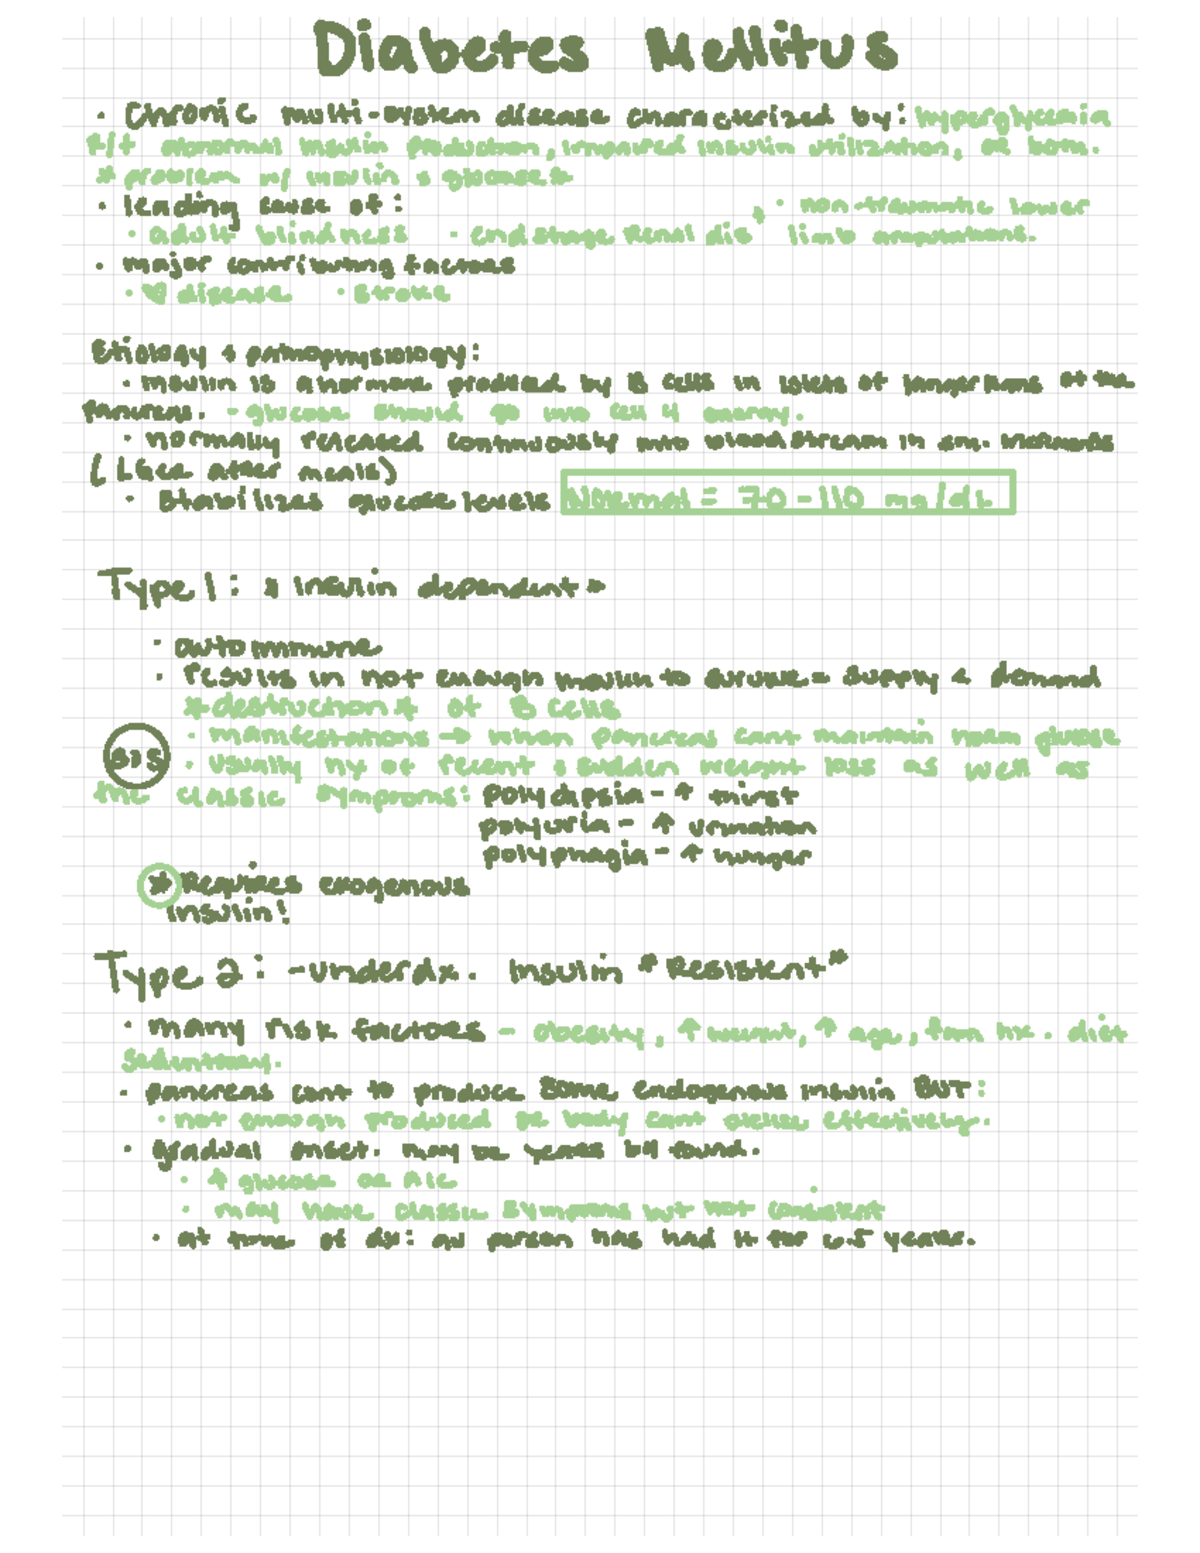 Diabetes Mellitus
· Chronic multi-system disease characterized by: hyperglycemia
R/t abnormal insulin production, impaired insulin utilization, or both.
* problem w/ insulin & glucose *
· leading cause of:
· adult blindness · end stage renal dis. · non-traumatic lower limb amputations.
· major contributing factors
· ♡ disease · stroke
Etiology + pathophysiology:
· insulin is a hormone produced by B cells in islets of langerhans of the
pancreas. - glucose should go into cell 4 energy.
· normally released continuously into bloodstream in sm. increments
( after meals)
· Stabilizes glucose levels Normal = 70-110 mg/dL
Type 1: * insulin dependent *
· autoimmune
· results in not enough insulin to survive = supply < demand
* destruction * of B cells
· manifestations → when pancreas cant maintain norm glucose
S/S · usually hx of recent & sudden weight loss as well as
the classic symptoms: polydipsia - ↑ thirst
polyuria - ↑ urination
polyphagia - ↑ hunger
* Requires exogenous
insulin!
Type 2: - underdx. Insulin *Resistent*
· many risk factors - obesity, ↑ weight, ↑ age, fam hx. diet
· pancreas cont to produce some endogenous insulin BUT:
· not enough produced or body cant effectively.
· gradual onset. may be years b4 found.
· ↑ glucose or A1C
· may have classic symptoms but not
· at time of dx: av person has had it for 6.5 years.